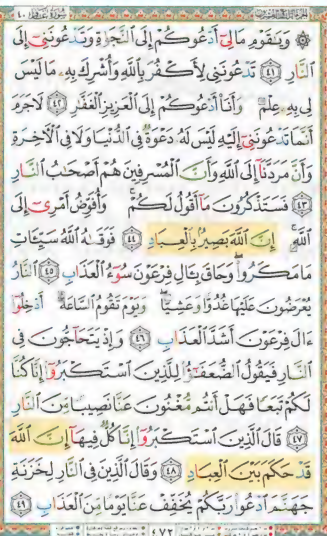 سُورَةُ غَافِرٍ ٤٠
۞ وَيَٰقَوْمِ مَا لِىٓ أَدْعُوكُمْ إِلَى ٱلنَّجَوٰةِ وَتَدْعُونَنِىٓ إِلَى
ٱلنَّارِ ٤١ تَدْعُونَنِى لِأَكْفُرَ بِٱللَّهِ وَأُشْرِكَ بِهِۦ مَا لَيْسَ
لِى بِهِۦ عِلْمٌ وَأَنَا۠ أَدْعُوكُمْ إِلَى ٱلْعَزِيزِ ٱلْغَفَّٰرِ ٤٢ لَا جَرَمَ
أَنَّمَا تَدْعُونَنِىٓ إِلَيْهِ لَيْسَ لَهُۥ دَعْوَةٌ فِى ٱلدُّنْيَا وَلَا فِى ٱلْءَاخِرَةِ
وَأَنَّ مَرَدَّنَآ إِلَى ٱللَّهِ وَأَنَّ ٱلْمُسْرِفِينَ هُمْ أَصْحَٰبُ ٱلنَّارِ
٤٣ فَسَتَذْكُرُونَ مَآ أَقُولُ لَكُمْ ۚ وَأُفَوِّضُ أَمْرِىٓ إِلَى
ٱللَّهِ ۚ إِنَّ ٱللَّهَ بَصِيرٌۢ بِٱلْعِبَادِ ٤٤ فَوَقَىٰهُ ٱللَّهُ سَيِّـَٔاتِ
مَا مَكَرُوا۟ ۖ وَحَاقَ بِـَٔالِ فِرْعَوْنَ سُوٓءُ ٱلْعَذَابِ ٤٥ ٱلنَّارُ
يُعْرَضُونَ عَلَيْهَا غُدُوًّا وَعَشِيًّا ۖ وَيَوْمَ تَقُومُ ٱلسَّاعَةُ أَدْخِلُوٓا۟
ءَالَ فِرْعَوْنَ أَشَدَّ ٱلْعَذَابِ ٤٦ وَإِذْ يَتَحَآجُّونَ فِى
ٱلنَّارِ فَيَقُولُ ٱلضُّعَفَٰٓؤُا۟ لِلَّذِينَ ٱسْتَكْبَرُوٓا۟ إِنَّا كُنَّا
لَكُمْ تَبَعًا فَهَلْ أَنتُم مُّغْنُونَ عَنَّا نَصِيبًا مِّنَ ٱلنَّارِ
٤٧ قَالَ ٱلَّذِينَ ٱسْتَكْبَرُوٓا۟ إِنَّا كُلٌّ فِيهَآ إِنَّ ٱللَّهَ
قَدْ حَكَمَ بَيْنَ ٱلْعِبَادِ ٤٨ وَقَالَ ٱلَّذِينَ فِى ٱلنَّارِ لِخَزَنَةِ
جَهَنَّمَ ٱدْعُوا۟ رَبَّكُمْ يُخَفِّفْ عَنَّا يَوْمًا مِّنَ ٱلْعَذَابِ ٤٩
٤٧٢